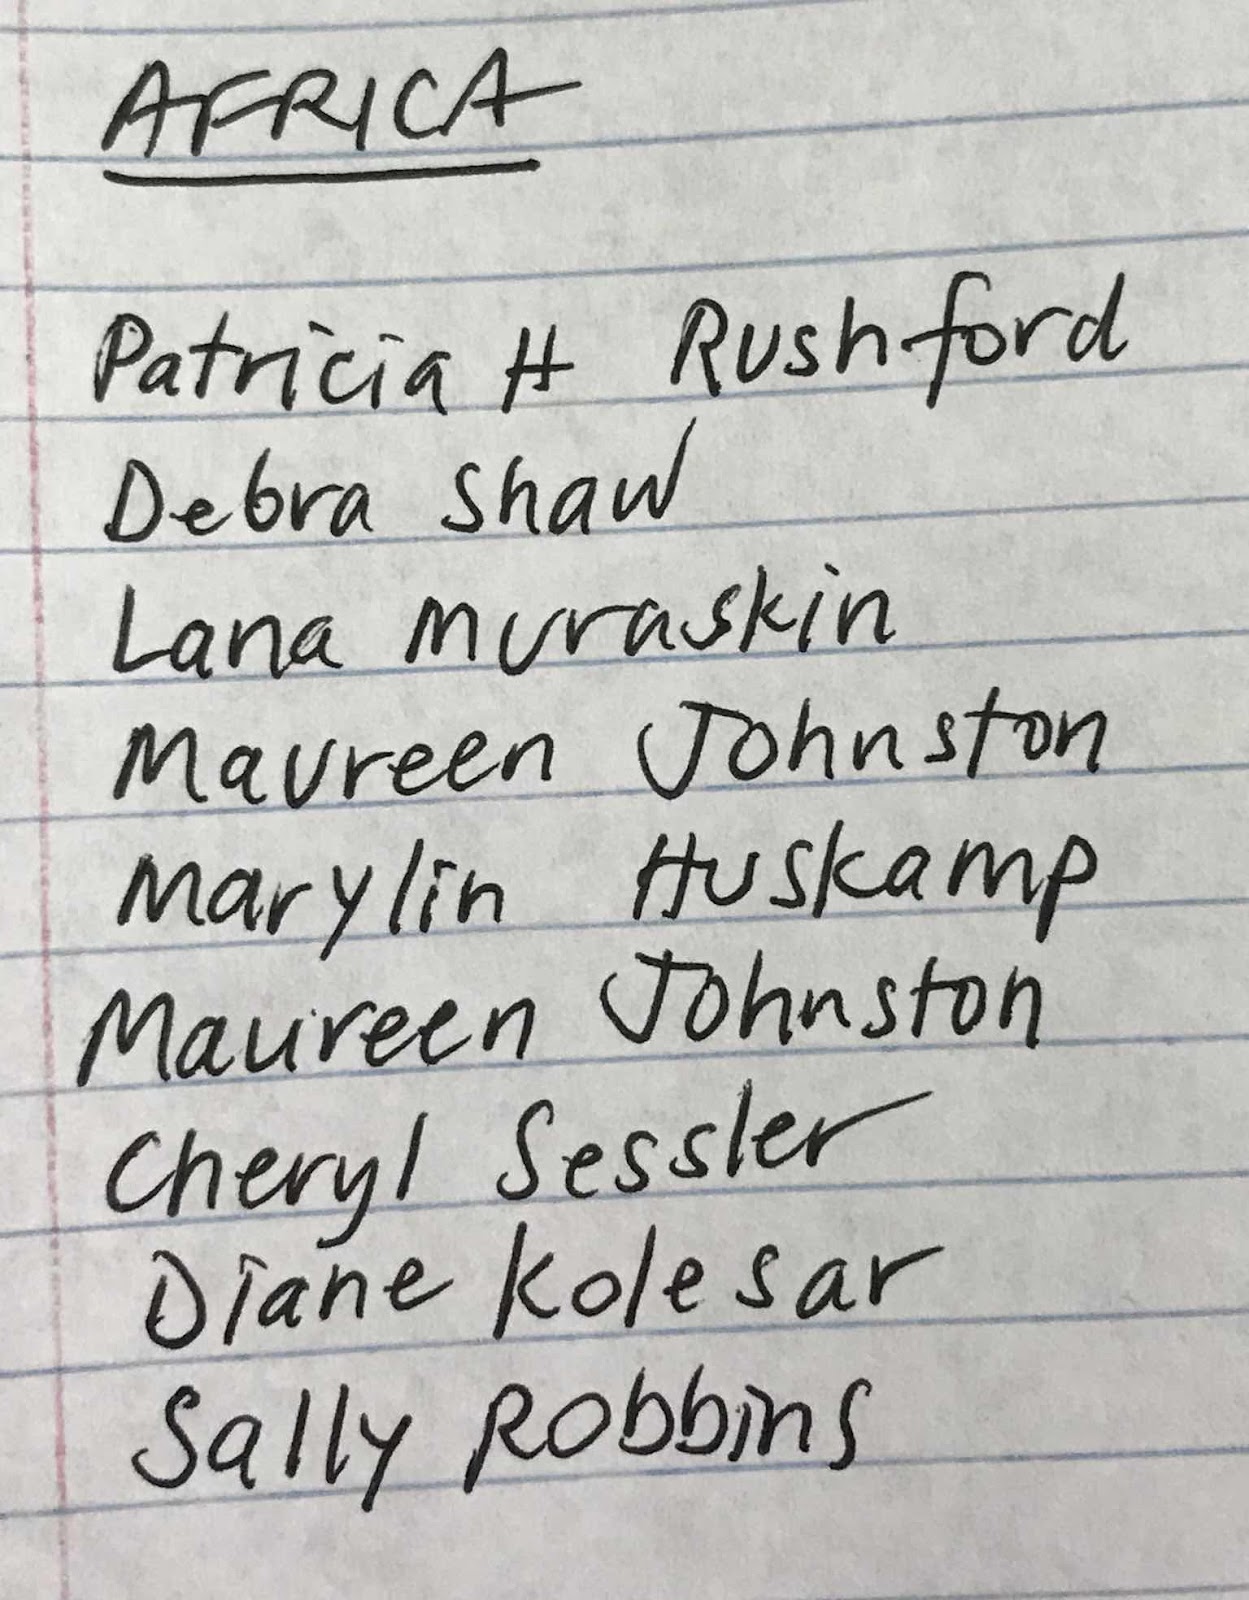 AFRICA
Patricia H Rushford
Debra Shaw
Lana Muraskin
Maureen Johnston
Marylin Huskamp
Maureen Johnston
Cheryl Sessler
Diane Kolesar
Sally Robbins